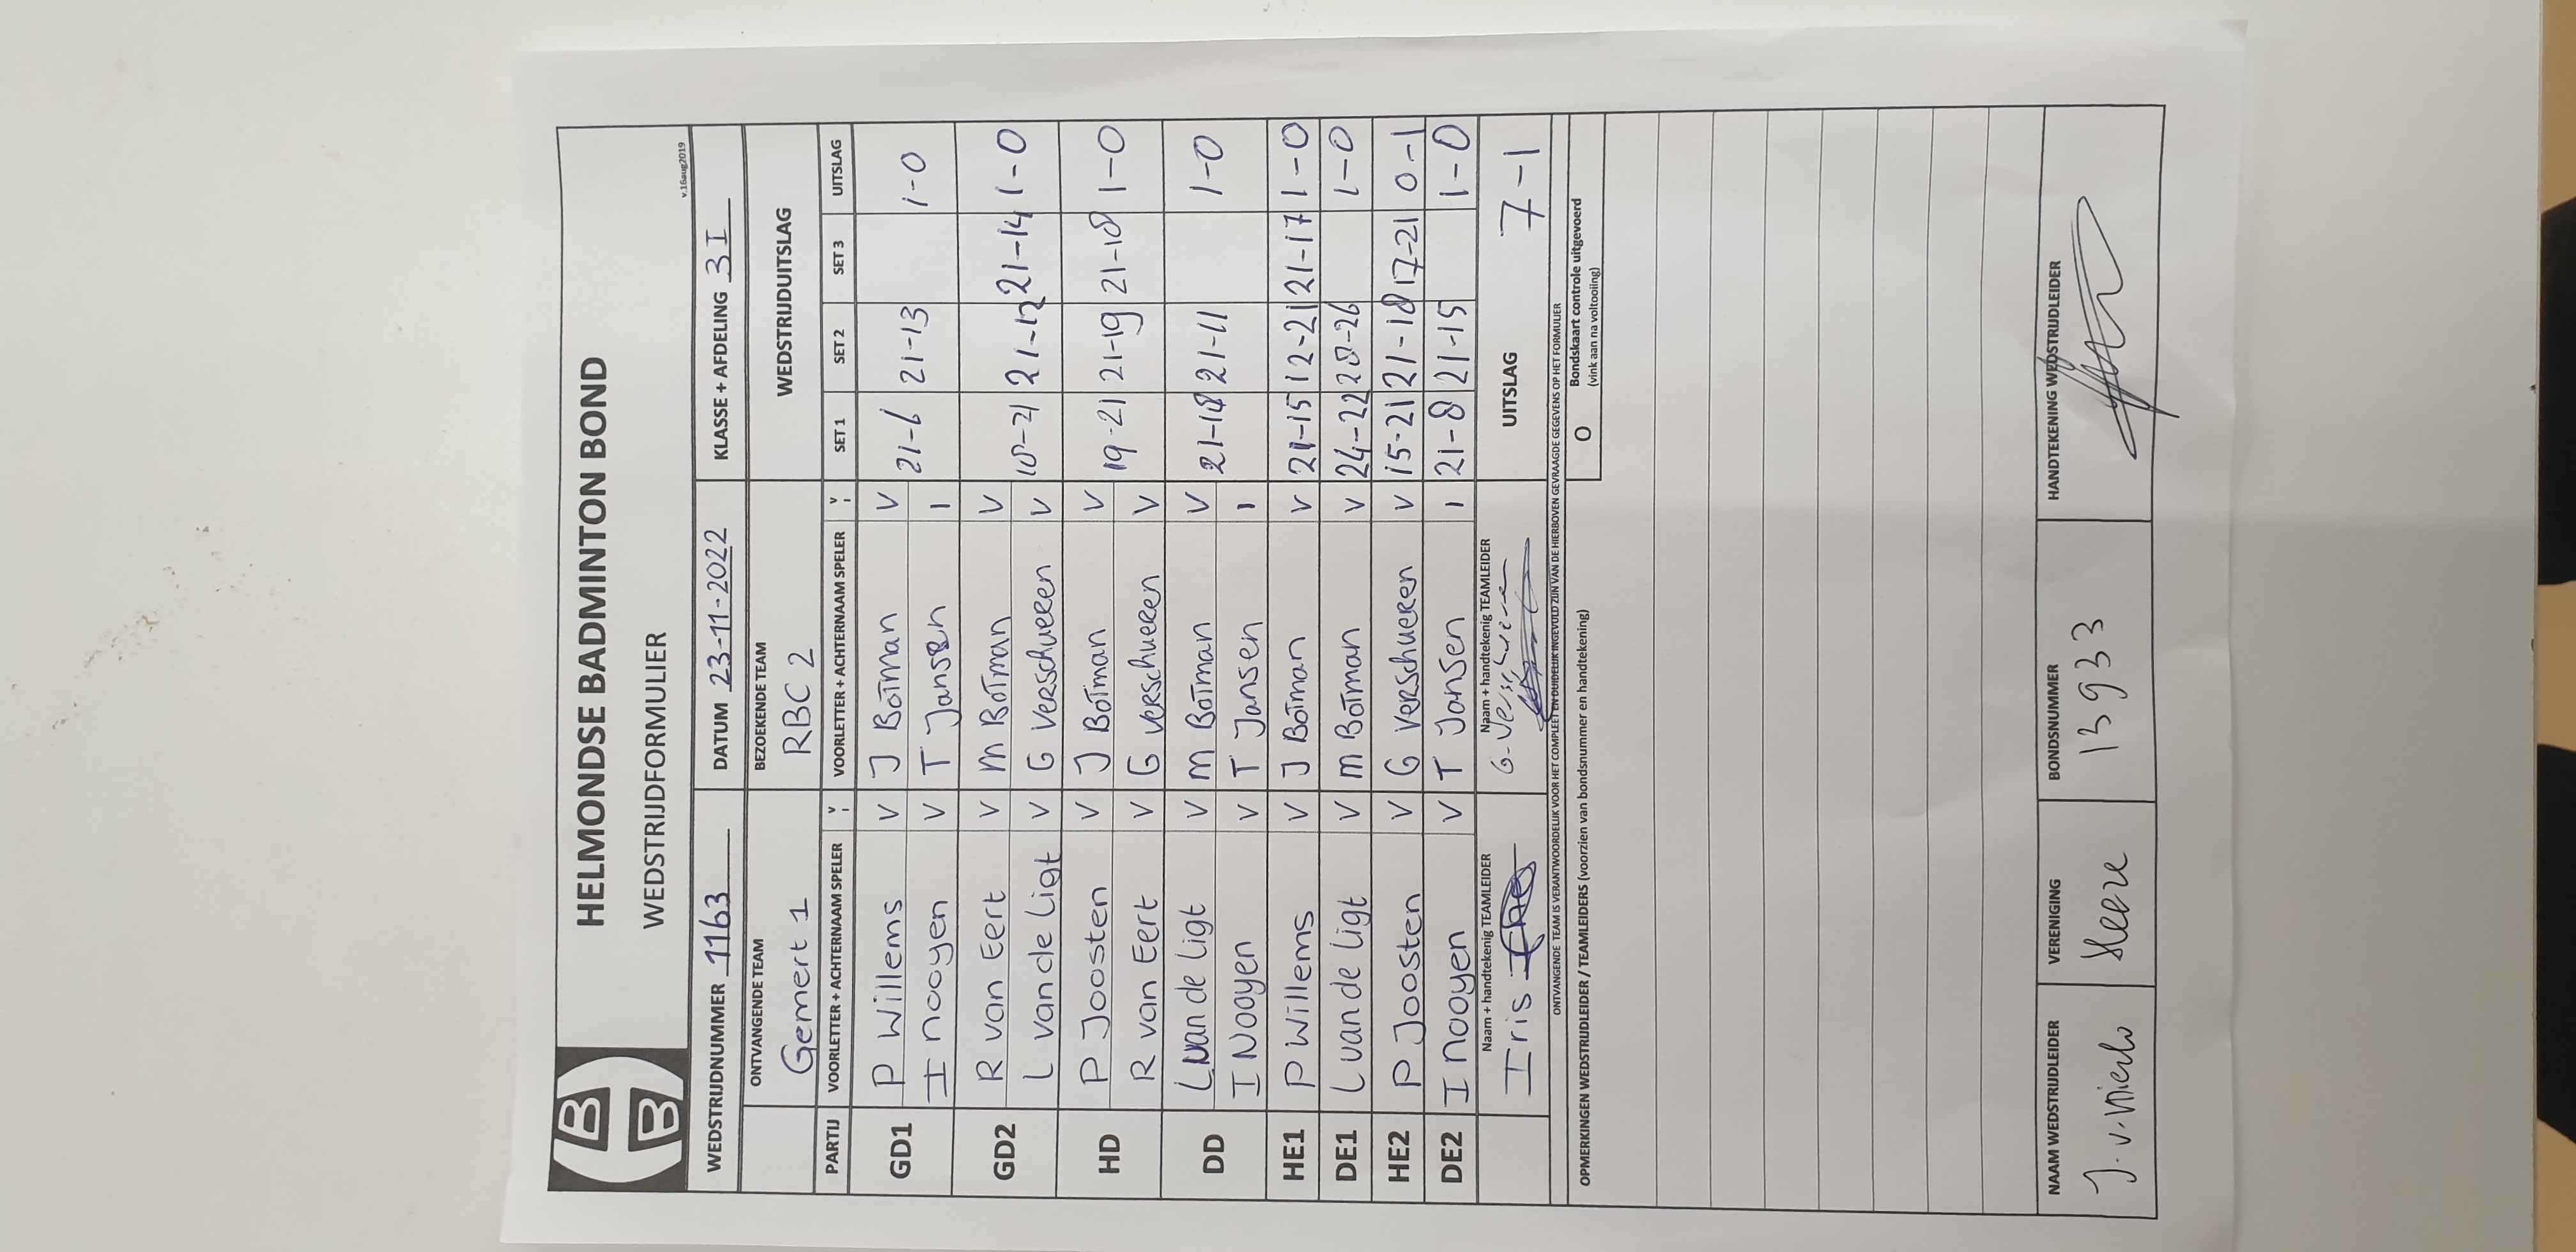 HELMONDSE BADMINTON BOND
WEDSTRIJDFORMULIER
v.16aug2019
WEDSTRIJDNUMMER 1163 DATUM 23-11-2022 KLASSE + AFDELING 3I
ONTVANGENDE TEAM BEZOEKENDE TEAM WEDSTRIJDUITSLAG
Gemert 1 RBC 2
PARTIJ VOORLETTER + ACHTERNAAM SPELER V - VOORLETTER + ACHTERNAAM SPELER V - SET 1 SET 2 SET 3 UITSLAG
GD1 P Willems V J Botman V 21-6 21-13 1-0
I nooyen V T Jansen I
GD2 R van Eert V M Botman V 18-21 21-12 21-14 1-0
L van de Ligt V G Verschueren V
HD P Joosten V J Botman V 19-21 21-19 21-18 1-0
R van Eert V G Verschueren V
DD L van de Ligt V M Botman V 21-18 21-11 1-0
I Nooyen V T Jansen I
HE1 P Willems V J Botman V 21-15 12-21 21-17 1-0
DE1 L van de Ligt V M Botman V 24-22 28-26 1-0
HE2 P Joosten V G Verschueren V 15-21 21-18 17-21 0-1
DE2 I nooyen V T Jansen I 21-8 21-15 1-0
Naam + handtekenig TEAMLEIDER Naam + handtekenig TEAMLEIDER UITSLAG 7-1
Iris G. Verschueren
ONTVANGENDE TEAM IS VERANTWOORDELIJK VOOR HET COMPLEET EN DUIDELIJK INGEVULD ZIJN VAN DE HIERBOVEN GEVRAAGDE GEGEVENS OP HET FORMULIER
OPMERKINGEN WEDSTRIJDLEIDER / TEAMLEIDERS (voorzien van bondsnummer en handtekening) O Bondskaart controle uitgevoerd
(vink aan na voltooiing)
NAAM WEDSTRIJDLEIDER VERENIGING BONDSNUMMER HANDTEKENING WEDSTRIJDLEIDER
J. v. Mierlo Heeze 13933